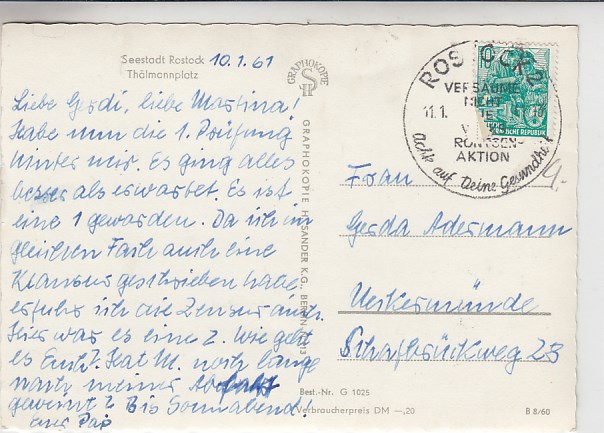 Seestadt Rostock
Thälmannplatz
10.1.61
Liebe Gerdi, liebe Martina!
Habe nun die 1. Prüfung
hinter mir. Es ging alles
besser als erwartet. Es ist
eine 1 geworden. Da ich im
gleichen Fach auch eine
Klausur geschrieben habe
erfuhr ich die Zensur auch.
Hier war es eine 2. Wie geht
es Euch? Hat M. noch lange
nach meiner Abfahrt
geweint? Bis Sonnabend!
Euer Pap
GRAPHOKOPIE
GRAPHOKOPIE H. SANDER K.G., BERLIN
Best.-Nr. G 1025
Verbraucherpreis DM —,20
B 8/60
ROSTOCK 2
VERSÄUME
NICHT
11.1.
RÖNTGEN-
AKTION
Achte auf Deine Gesundheit
10
DEUTSCHE DEMOKRATISCHE REPUBLIK
4.-
Frau
Gerda Adermann
Ueckermünde
Schafbrückweg 23